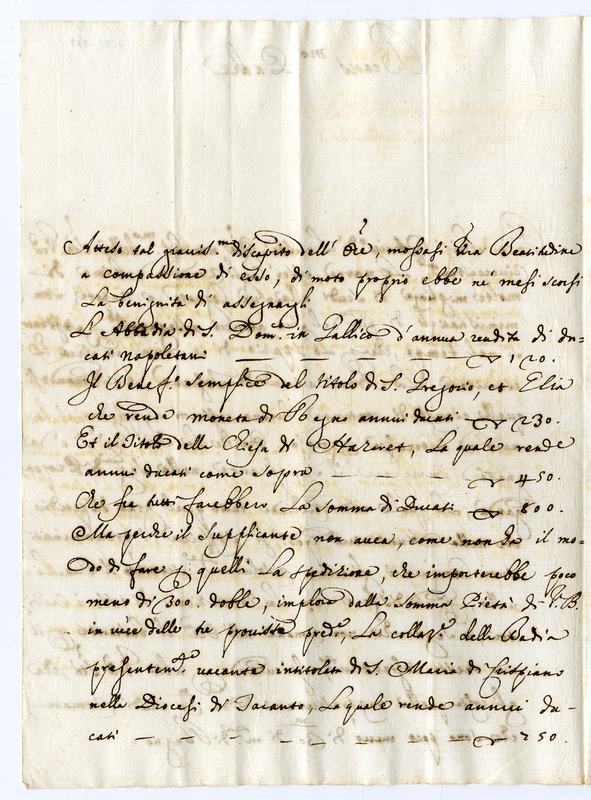 Atteso tal gravis.mo discapito dell' Ore, mossasi Vra Beatitudine
a compassione di esso, di moto proprio ebbe ne' mesi scorsi
La benignità di assegnargli
L'Abbadia di S. Dom.co in Gallico d'annua rendita di du=
cati napoletani 120.
Il Benef.o semplice del titolo di S. Gregorio, et Elia
che rende moneta di Regno annui ducati 230.
Et il Titolo della Chiesa di Nazaret, La quale rende
annui ducati come sopra 450.
Che fra tutti farebbero La somma di Ducati 800.
Ma perche il supplicante non avea, come non ha il mo=
do di fare p quelli La spedizione, che importerebbe poco
meno di 300. doble, implora dalla somma Pietà di V.B.
in vece delle tre proviste pred.e, La collaz.e della Badia
presentem.te vacante intitolata di S. Maria di Crispiano
nella Diocesi di Taranto, La quale rende annui du=
cati 250.